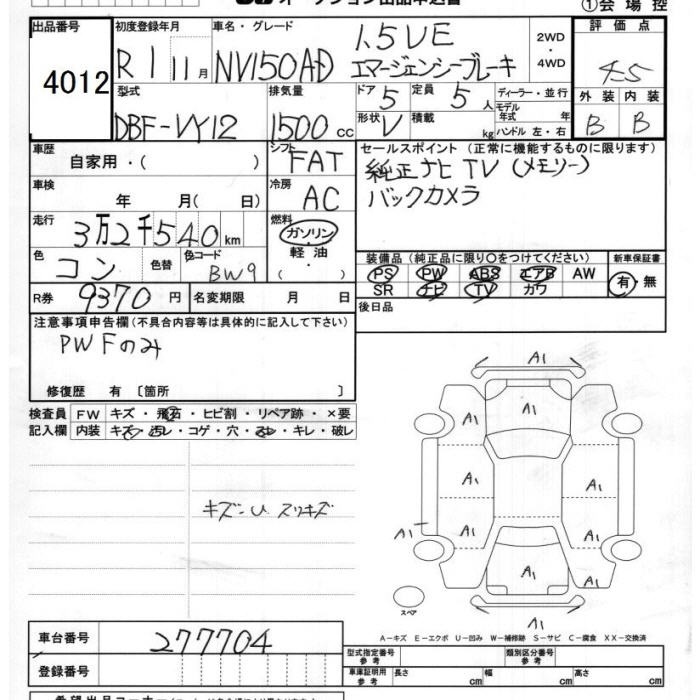 ①会場控
出品番号
4012
初度登録年月
R 1 11月
車名・グレード
NV150AD 1.5VE
エマージェンシーブレーキ
2WD
・
4WD
評価点
4.5
型式
DBF-VY12
排気量
1500 cc
ドア 5
定員 5人
形状 V
積載 kg
ディーラー・並行
モデル
年式 年
ハンドル 左・右
外装 内装
B B
車歴
自家用・( )
シフト
FAT
セールスポイント (正常に機能するものに限ります)
純正ナビTV(メモリー)
バックカメラ
車検
年 月( 日)
冷房
AC
走行
3万2千540km
燃料
ガソリン
・
軽油
( )
色
コン
色替
色コード
BW9
装備品 (純正品に限り○をつけてください)
PS PW ABS エアB AW
SR ナビ TV カワ
新車保証書
有・無
R券 9370円
名変期限 月 日
後日品
注意事項申告欄(不具合内容等は具体的に記入して下さい)
PWFのみ
修復歴 有 〔箇所 〕
検査員
記入欄
FW キズ・飛石・ヒビ割・リペア跡・×要
内装 キズ・汚レ・コゲ・穴・ヨレ・キレ・破レ
キズ凹 スリキズ
A1
A1
A1
A1
A1
A1
A1
A1
A1
A1
A1
スペア
A-キズ E-エクボ U-凹み W-補修跡 S-サビ C-腐食 XX-交換済
車台番号
277704
登録番号
型式指定番号
参考
類別区分番号
参考
車庫証明用
参考
長さ cm
幅 cm
高さ cm